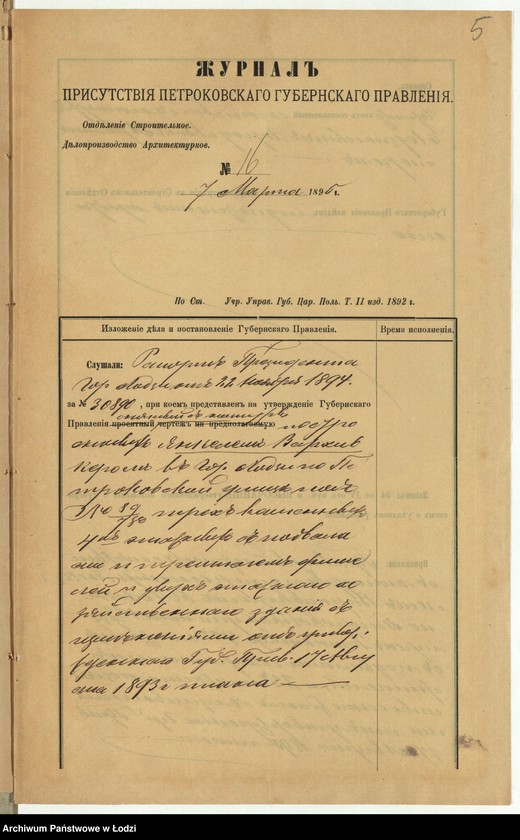 5
ЖУРНАЛЪ
ПРИСУТСТВІЯ ПЕТРОКОВСКАГО ГУБЕРНСКАГО ПРАВЛЕНІЯ.
Отдѣленіе Строительное.
Дѣлопроизводство Архитектурное.
№ 16
7 Марта 1895 г.
По Ст. Учр. Управ. Губ. Цар. Поль. Т. II изд. 1892 г.
Изложеніе дѣла и постановленіе Губернскаго Правленія.
Время исполненія.
Слушали: Рапортъ Президента
гор. Лодзи отъ 22 Ноября 1894
за № 30890, при коемъ представленъ на утвержденіе Губернскаго
снятый съ натуры
Правленія проектный чертежъ на предполагаемую постро
Янкелемъ
въ гор. Лодзи по Пе
троковской улицѣ подъ
трехъ каменныхъ
этажныхъ съ подвала
ми и
ной и двухъ этажнаго хо
зяйственнаго зданія съ
отъ утвер.
жденнаго Губ. Прав. 17 Авгу
ста 1893 г плана
Archiwum Państwowe w Łodzi